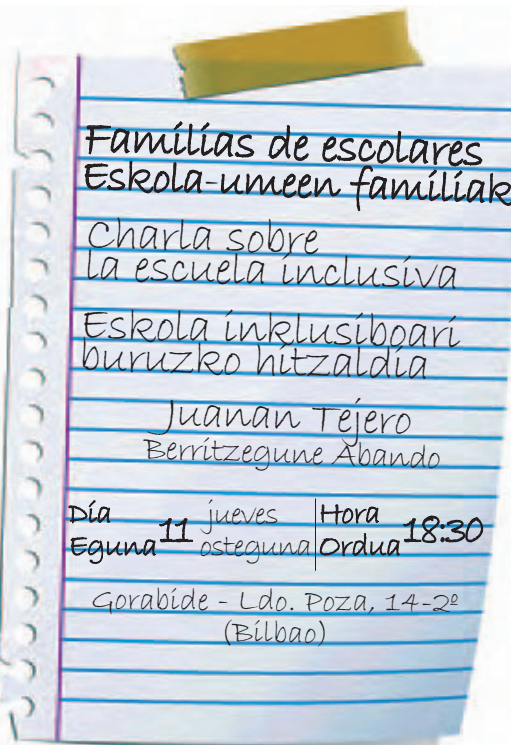 Familias de escolares
Eskola-umeen familiak
Charla sobre
la escuela inclusiva
Eskola inklusiboari
buruzko hitzaldia
Juanan Tejero
Berritzegune Abando
Día
Eguna 11 jueves
osteguna
Hora
Ordua 18:30
Gorabide - Ldo. Poza, 14-2º
(Bilbao)